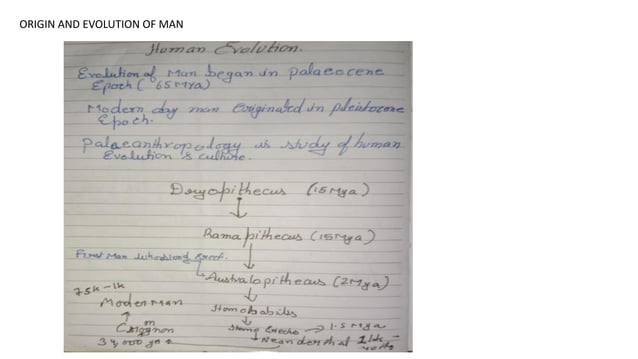 ORIGIN AND EVOLUTION OF MAN
Human Evolution.
Evolution of Man began in palaeocene
Epoch ( 65 Mya)
Modern day man Originated in pleistocene
Epoch.
Palaeanthropology is study of human
Evolution & culture.
Dryopithecus (15 Mya)
↓
Ramapithecus (15 Mya)
↓
First Man who stand erect.
Australopithecus (2 Mya)
↓
75k-1k
Modern Man
↑
Cromagnon
34,000 yrs
Homohabilis
↓
Homo Erecto → 1.5 Mya
↓
Neanderthal